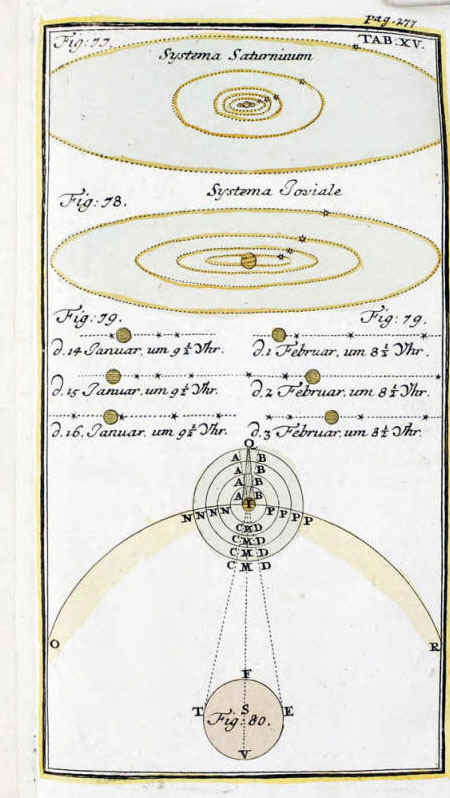 pag. 277
Fig: 77.
TAB. XV.
Systema Saturninum
Systema Joviale
Fig: 78.
Fig: 79.
Fig: 79.
d. 14 Januar. um 9½ Vhr.
d. 1 Februar. um 8½ Vhr.
d. 15 Januar. um 9½ Vhr.
d. 2 Februar. um 8½ Vhr.
d. 16. Januar. um 9½ Vhr.
d. 3 Februar. um 8½ Vhr.
Q
A B
A B
A B
A B
I
N N N N P P P P
C M D
C M D
C M D
C M D
O R
F
T S E
Fig: 80.
V